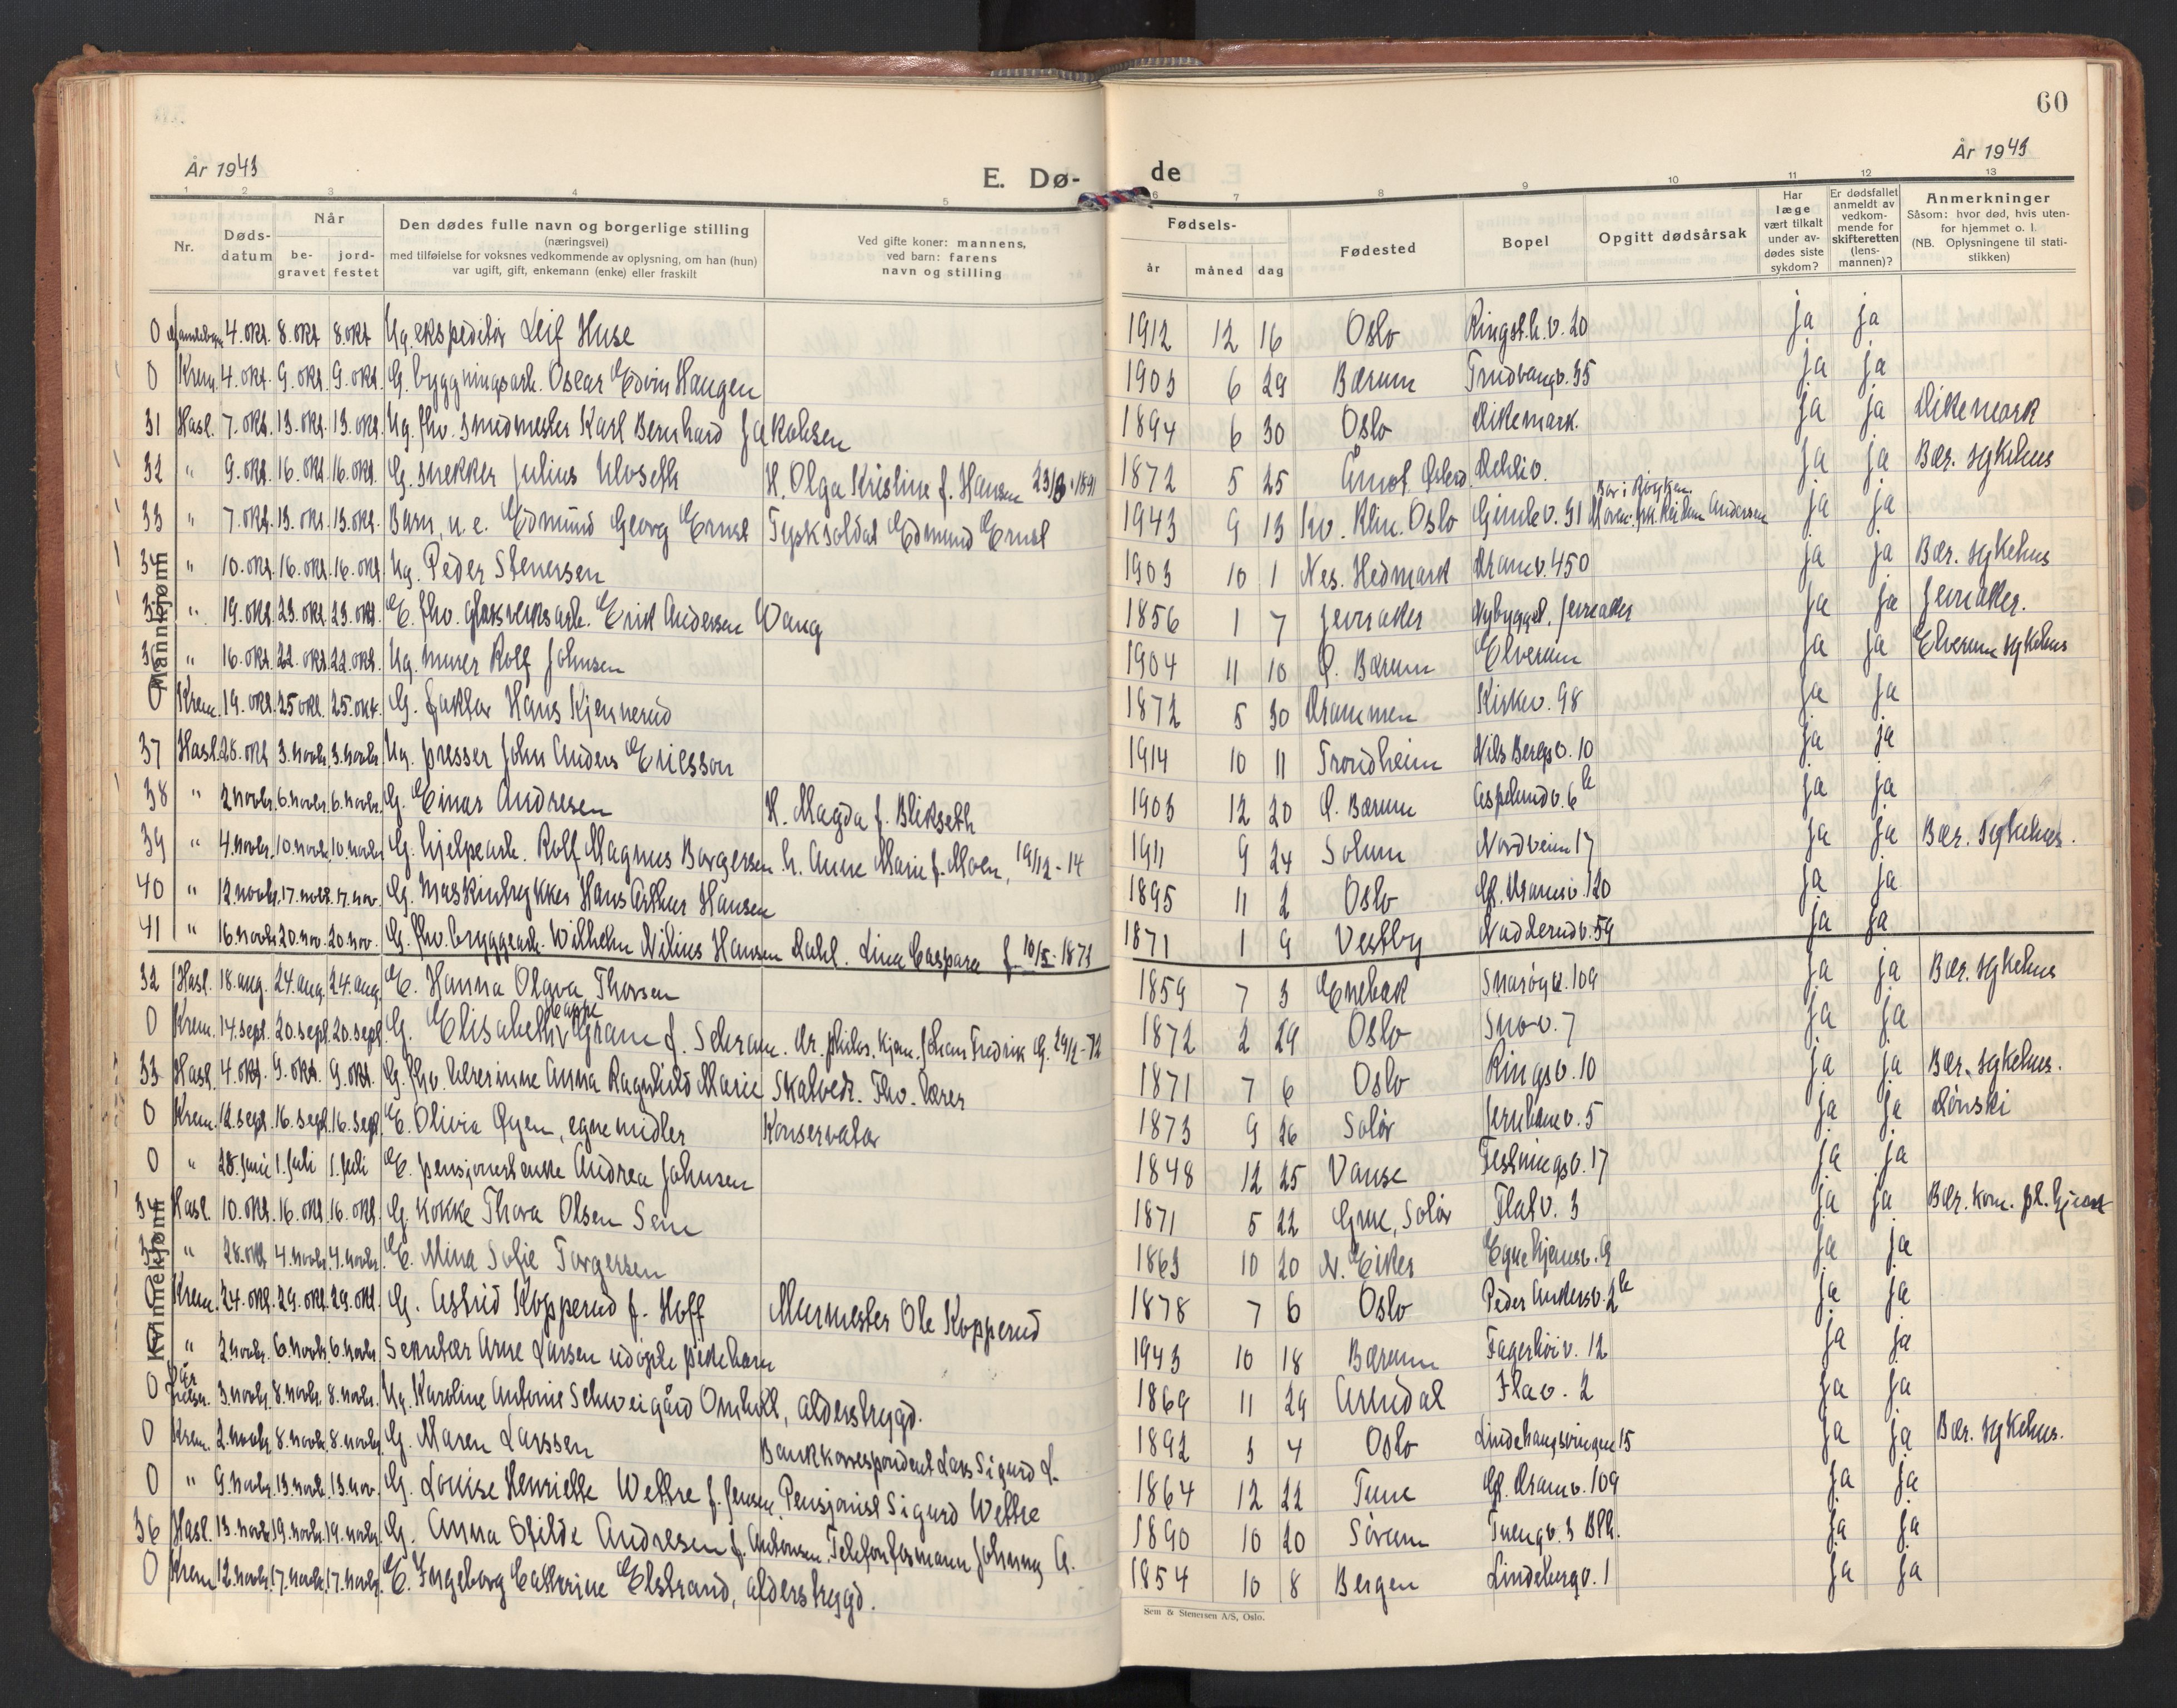 60
År 1943
År 1943
E. Dø-
de
1 2 3 4 5
6 7 8 9 10 11 12 13
Nr.
Døds-
datum
Når
be-
gravet
jord-
festet
Den dødes fulle navn og borgerlige stilling
(næringsvei)
med tilføielse for voksnes vedkommende av oplysning, om han (hun)
var ugift, gift, enkemann (enke) eller fraskilt
Ved gifte koner: mannens,
ved barn: farens
navn og stilling
Fødsels-
år
måned
dag
Fødested
Bopel
Opgitt dødsårsak
Har
læge
vært tilkalt
under av-
dødes siste
sykdom?
Er dødsfallet
anmeldt av
vedkom-
mende for
skifteretten
(lens-
mannen)?
Anmerkninger
Såsom: hvor død, hvis uten-
for hjemmet o. l.
(NB. Oplysningene til stati-
stikken)
Mannkjønn
0 4. okt. 8. okt 8. okt Ug. ekspeditør Leif Huse 1912 12 16 Oslo Ringst.h.v. 20 ja ja
0 Krem. 4. okt. 9. okt. 9. okt. G. bygningsarb. Oscar Edvin Haugen 1903 6 29 Bærum Trudvangv. 35 ja ja
31 Hasl. 7. okt. 13. okt. 13. okt. Ug. fhv. smedmester Karl Bernhard Jakobsen 1894 6 30 Oslo Dikemark. ja ja Dikemark
32 " 9. okt. 16. okt 16. okt. G. snekker Julius Ulvseth H. Olga Kristine f. Hansen 1872 5 25 Åmot Østerd. ja ja Bær. sykehus
33 " 7. okt. 13. okt. 13. okt. Barn, u. e. Edmund Georg Ernst Tysk soldat Edmund Ernst 1943 9 13 Kv. klin. Oslo Gimlev. 31 Bor i Røyken ja ja
34 " 10. okt. 16. okt. 16. okt. Ug. Peder Stenersen 1903 10 1 Nes. Hedmark Dramv. 450 ja ja Bær. sykehus
35 " 19. okt. 23. okt. 23. okt. E. fhv. glassverksarb. Erik Andersen Wang 1856 1 7 Jevnaker Nybygget, Jevnaker ja ja Jevnaker.
36 " 16. okt. 22. okt. 22. okt. Ug. murer Rolf Johnsen 1904 11 10 Ø. Bærum Elverum ja ja Elverum sykehus
0 Krem. 19. okt. 25 okt. 25. okt. G. faktor Hans Kjennerud 1872 5 30 Drammen Kirkev. 98 ja ja
37 Hasl. 28. okt 3. novbr. 3. novbr. Ug. presser John Anders Ericsson 1914 10 11 Trondheim Nils Bergsv. 10 ja ja
38 " 2 novbr. 6. novbr. 6. novbr. G. Einar Andresen H. Magda f. Blikseth 1903 12 20 Ø. Bærum Aspelundv. 6 b ja ja
39 " 4. novbr. 10. novbr. 10. novbr. G. hjelpearb. Rolf Magnus Borgersen. h. Anne Marie f. Moen, 19/12 - 14 1911 9 24 Solum Nordveien 17 ja ja Bær. sykehus.
40 " 12. novbr. 17. novbr. 17. nov. G. Maskintrykker Hans Arthur Hansen 1895 11 2 Oslo Gl. Dramsv. 120 ja ja
41 " 16. novbr. 20. nov. 20. nov. G. fhv. bryggearb. Wilhelm Nilius Hansen Dahl. Lina Caspara f 10/5 - 1873 1871 1 9 Vestby Nadderudv. 59 ja ja
Kvinnekjønn
32 Hasl. 18. aug. 24. aug. 24. aug. E. Hanna Olava Thorsen 1859 7 3 Enebak Snarøyv. 109 ja ja Bær. sykehus
0 Krem. 14. sept. 20. sept. 20. sept. G. Elisabeth Cappe Gram f. Schram. dr. philos. kjem. Johan Fredrik G. 29/2 - 72 1872 2 29 Oslo Snov. 7 ja ja
33 Hasl. 4. okt. 9. okt. 9. okt. G. fhv. lærerinne Anna Ragnhild Marie Skatvedt. Fhv. lærer 1871 7 6 Oslo Ringsv. 10 ja ja Bær. sykehus.
0 Krem. 12. sept. 16. sept. 16. sept. E. Olivia Øyen, egne midler Konservator 1873 9 26 Solør Jernbanev. 5 ja ja Lønski
0 " 28. juni 1. juli 1. juli E. pensjonert enke Andrea Johnsen 1848 12 25 Vanse Festningsv. 17 ja ja
34 Hasl. 10. okt. 16. okt. 16. okt. G. kokke Thora Olsen Sem 1871 5 22 Grue, Solør Flatv. 3 ja ja Bær. kom. pl. hjem
35 " 28. okt 4. novbr. 4. novbr. E. Mina Sofie Torgersen 1863 10 20 N. Eiker Egne hjemsv. 9 ja ja
0 Krem. 24. okt. 29. okt. 29. okt. G. Astrid Kopperud f. Hoff Murmester Ole Kopperud 1878 7 6 Oslo Peder Ankersv. 2 b ja ja
" 2. novbr. 6. novbr. 6. novbr. Sekretær Arne Larsen udøpte pikebarn 1943 10 18 Bærum Fagerhøiv. 12 ja ja
0 3. novbr. 8. novbr. 8. novbr. Ug. Karoline Antonie Schweigård Omholt, alderstrygd. 1869 11 29 Arendal Flav. 2 ja ja
0 Krem. 2. novbr. 8. novbr. 8. novbr. G. Maren Larssen Bankkorrespondent Lars Sigurd L. 1892 3 4 Oslo Lindehaugsvingen 15 ja ja Bær. sykehus.
0 " 9. novbr. 13. novbr. 13. nov. G. Louise Henriette Wettre f. Jensen, Pensjonist Sigurd Wettre 1864 12 22 Tune Gl. Dramv. 109 ja ja
36 Hasl. 13. novbr. 19. novbr. 19. novbr. G. Anna Otilde Andresen f. Antonsen. Telefonformann Johnny A. 1890 10 20 Sørum Tuengv. 3 Blh. ja ja
0 Krem 12. novbr. 17. novbr. 17. novbr. E. Ingeborg Cathrine Elstrand, alderstrygd. 1854 10 8 Bergen Lindebergv. 1 ja ja
Sem & Stenersen A/S, Oslo.